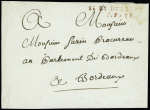 A Monsieur
Monsieur furin Procureur
au Parlement De Bordeaux
A Bordeaux